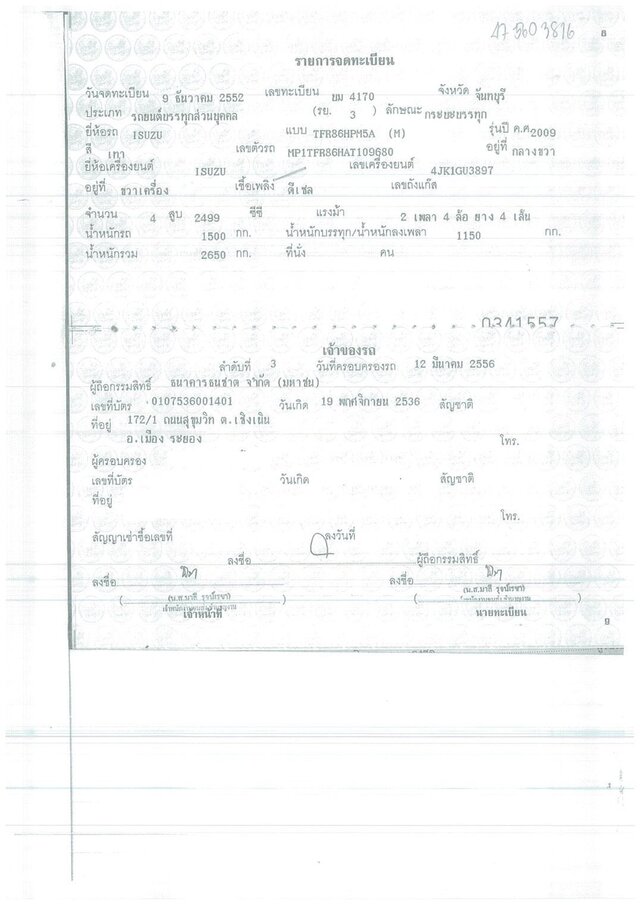 8
รายการจดทะเบียน
วันจดทะเบียน 9 ธันวาคม 2552 เลขทะเบียน ยม 4170 จังหวัด จันทบุรี
ประเภท รถยนต์บรรทุกส่วนบุคคล (รย. 3 ) ลักษณะ กระบะบรรทุก
ยี่ห้อรถ ISUZU แบบ TFR86HPM5A (M) รุ่นปี ค.ศ. 2009
สี เทา เลขตัวรถ MP1TFR86HAT109680 อยู่ที่ กลางขวา
ยี่ห้อเครื่องยนต์ ISUZU เลขเครื่องยนต์ 4JK1GU3897
อยู่ที่ ขวาเครื่อง เชื้อเพลิง ดีเซล เลขถังแก๊ส
จำนวน 4 สูบ 2499 ซีซี แรงม้า 2 เพลา 4 ล้อ ยาง 4 เส้น
น้ำหนักรถ 1500 กก. น้ำหนักบรรทุก/น้ำหนักลงเพลา 1150 กก.
น้ำหนักรวม 2650 กก. ที่นั่ง คน
0341557
เจ้าของรถ
ลำดับที่ 3 วันที่ครอบครองรถ 12 มีนาคม 2556
ผู้ถือกรรมสิทธิ์ ธนาคารธนชาต จำกัด (มหาชน)
เลขที่บัตร 0107536001401 วันเกิด 19 พฤศจิกายน 2536 สัญชาติ
ที่อยู่ 172/1 ถนนสุขุมวิท ต.เชิงเนิน
อ.เมือง ระยอง โทร.
ผู้ครอบครอง
เลขที่บัตร วันเกิด สัญชาติ
ที่อยู่
โทร.
สัญญาเช่าซื้อเลขที่ ลงวันที่
ลงชื่อ ผู้ถือกรรมสิทธิ์
ลงชื่อ ลงชื่อ
เจ้าหน้าที่ นายทะเบียน
9